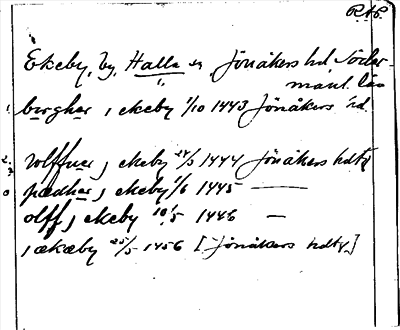 RAP.
Ekeby, by, Halla sn Jönåkers hd, Söder-
manl. län
bergher, i ekeby 1/10 1443 Jönåkers hd.
wlffuer j ekeby 24/5 1444 Jönåkers hdtg
pædhar j ekeby 1/6 1445 —
olff j ekeby 10/5 1446 —
j ækæby 25/5 1456 [Jönåkers hdtg.]